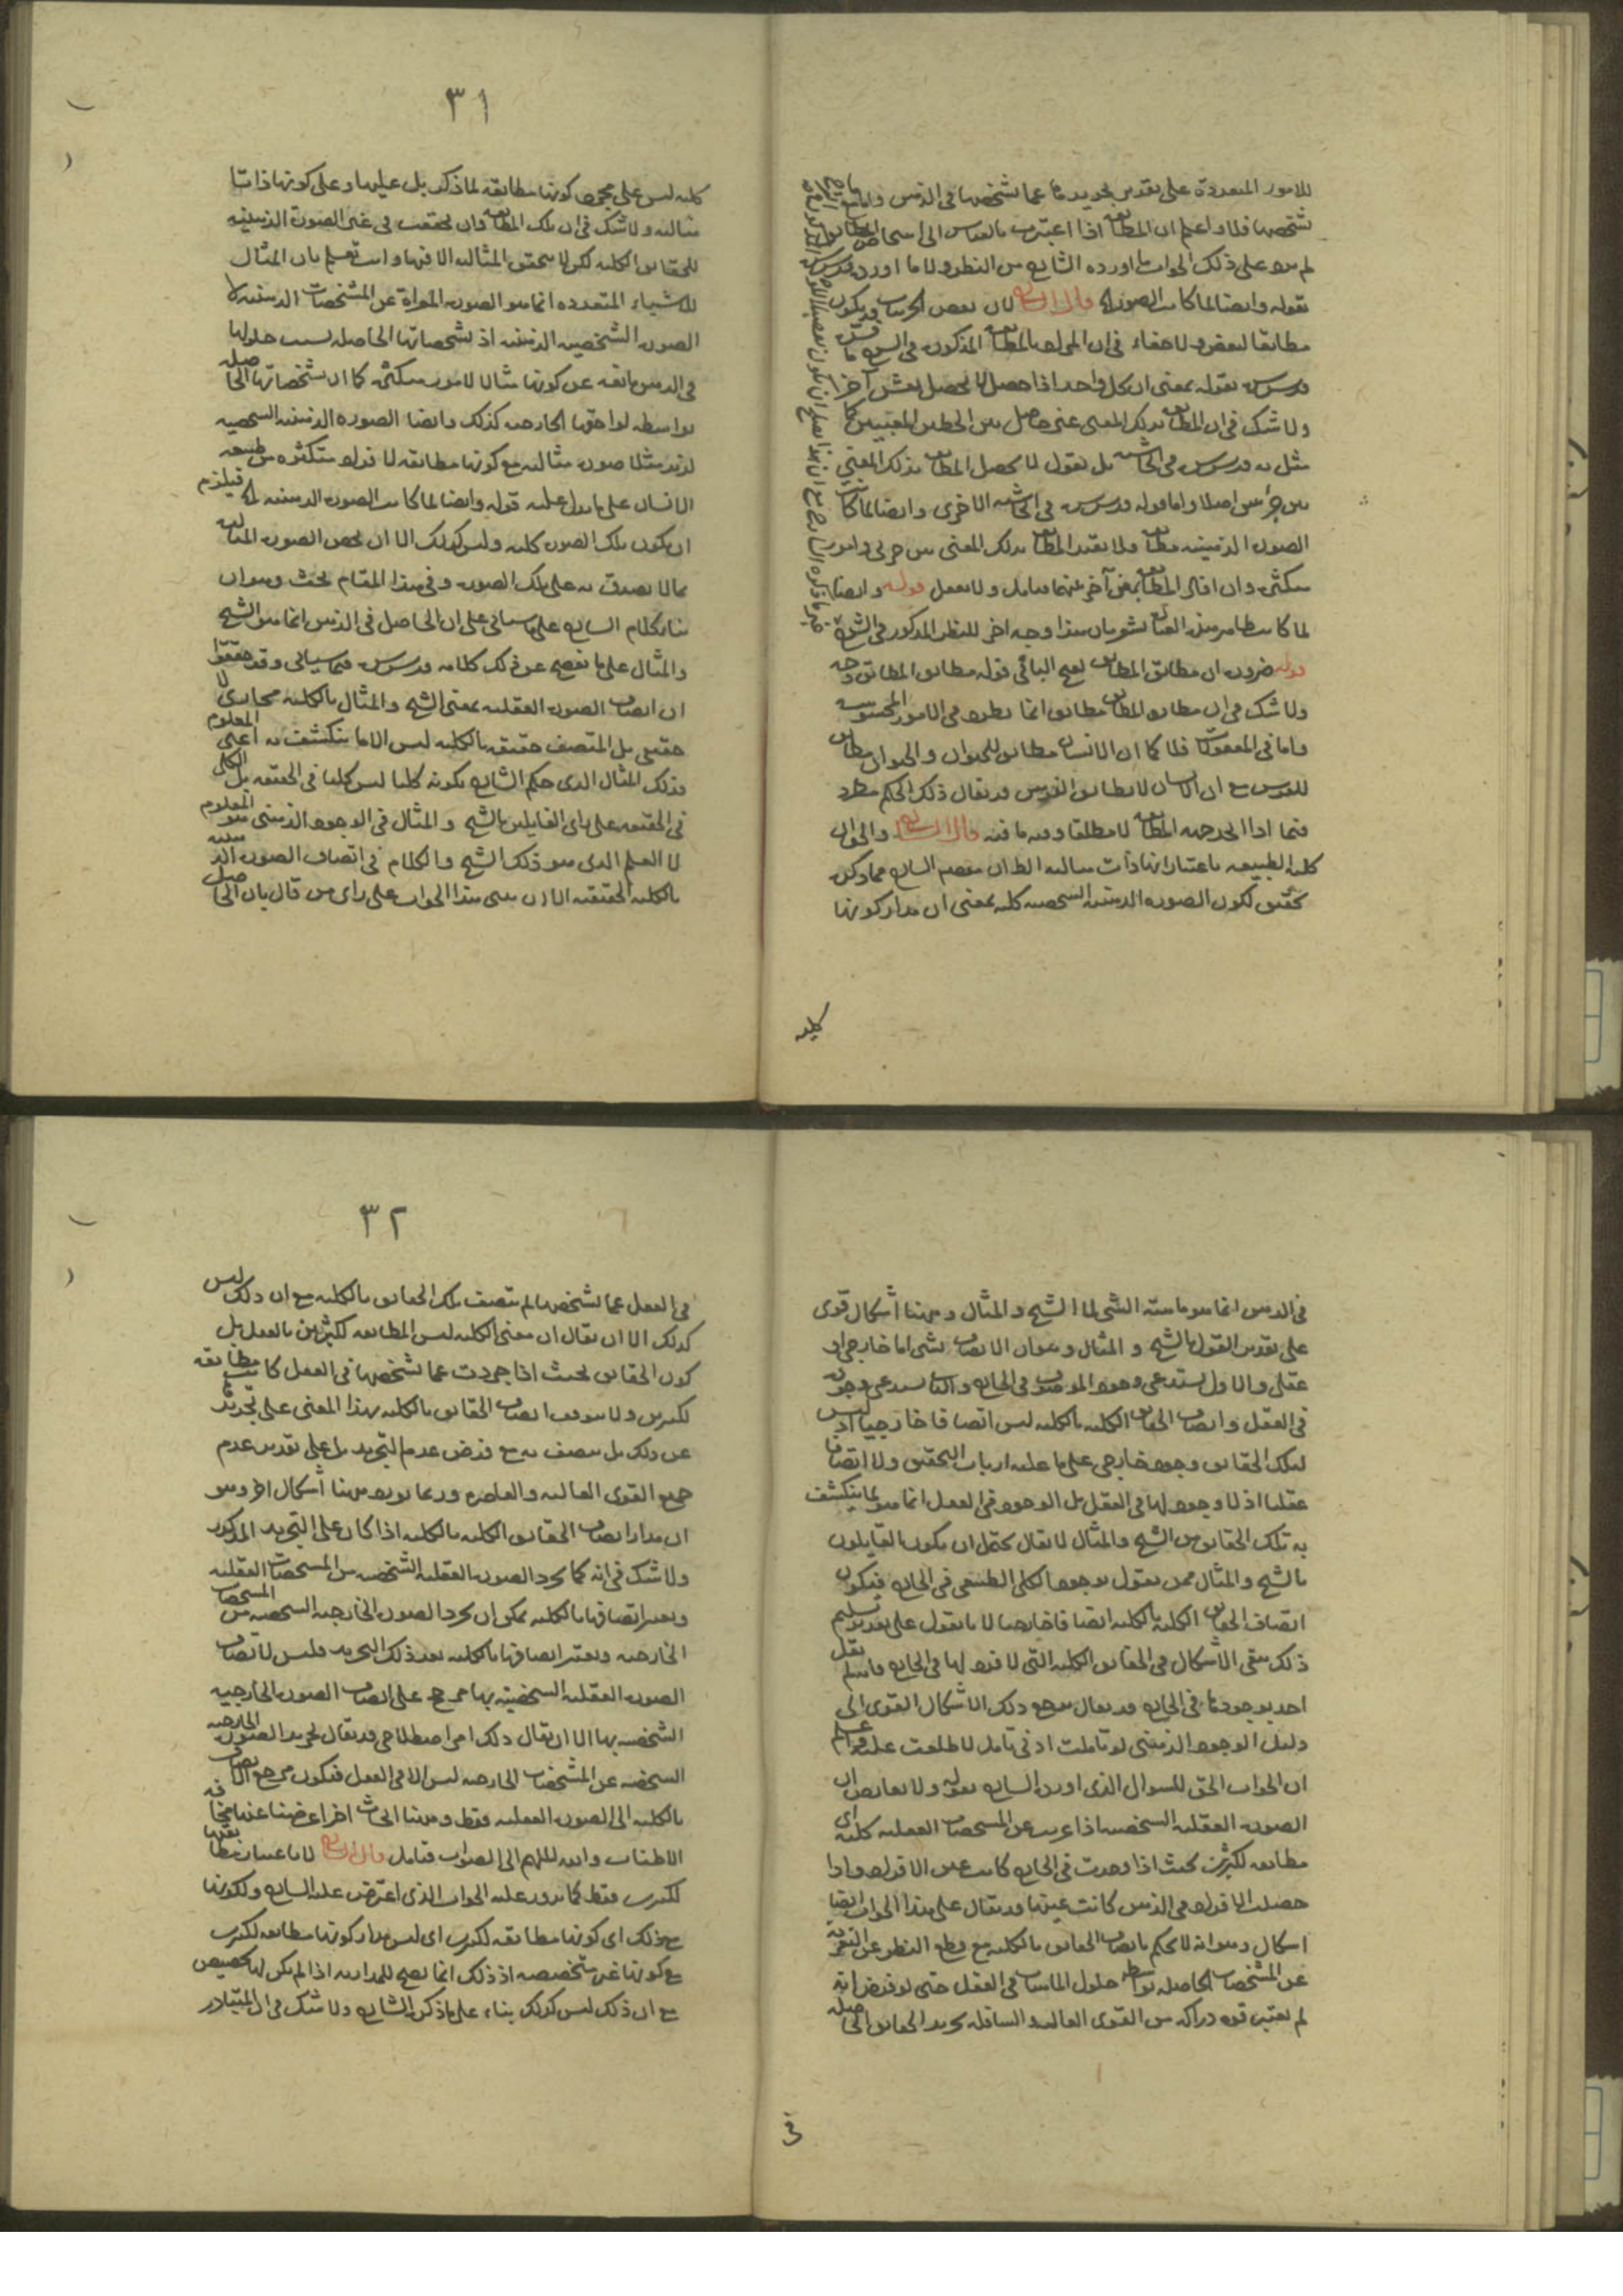 للامور المتعددة على تقدير تجريدها عما تشخصها في الذهن واما مع
تشخصها فلا واعلم ان المطابقة اذا اعتبرت بالقياس الى اشخاص
لم يرد على ذلك الجواب ما اورده الشارح من النظر ولا ما اورده قدس سره
بقوله وايضا لما كانت الصورة قال الشارح لان بعض الجزئيات قد يكون
مطابقا لبعض ولا خفاء في ان المراد بالمطابقة المذكورة في الشرح ما
قدس سره بقوله بمعنى ان كل واحد اذا حصل لا يحصل بعض آخر
ولا شك في ان المطابقة بذلك المعنى غير حاصل بين الخطين المعينين كما
مثل به قدس سره في الحاشية بل نقول لا يحصل المطابقة بذلك المعنى
بين جزئين اصلا واما قوله قدس سره في الحاشية الاخرى وايضا لما كانت
الصورة الذهنية مطابقة فلا يفيد المطابقة بذلك المعنى بين جزئي وامور
متكثرة وان افاد المطابقة بمعنى آخر بينهما فتأمل ولا تغفل قوله وايضا
لما كانت ظاهر هذه العبارة يشعر بان هذا وجه اخر للنظر المذكور في الشرح
قوله ضرورة ان مطابق المطابق بفتح الباء في قوله مطابق المطابق وجه
ولا شك في ان مطابق المطابق مطابق انما يطرد في الامور المحسوسة
واما في المعقولات فلا كما ان الانسان مطابق للحيوان والحيوان مطابق
للفرس مع ان الانسان لا يطابق الفرس وقد يقال ذلك الحكم مطرد
فيما اذا اتحد جهة المطابقة لا مطلقا وفيه ما فيه قال الشارح والحق ان
كلية الطبيعة باعتبار انها ذات مثالية الظاهر ان مقصود الشارح مما ذكره
تحقيق لكون الصورة الذهنية الشخصية كلية بمعنى ان مدار كونها
كلية
٣١
كلية ليس على مجرد كونها مطابقة لما ذكر بل عليها وعلى كونها ذاتا
مثالية ولا شك في ان تلك المطابقة وان تحققت في غير الصورة الذهنية
للحقايق الكلية لكن لا يتحقق المثالية الا فيها وانت تعلم بان المثال
للاشياء المتعددة انما هو الصورة المعراة عن المشخصات الذهنية لا
الصورة الشخصية الذهنية اذ تشخصاتها الحاصلة بسبب حلولها
في الذهن مانعة عن كونها مثالا لامور متكثرة كما ان تشخصاتها الحاصلة
بواسطة لواحقها الخارجية كذلك وايضا الصورة الذهنية الشخصية
لزيد مثلا صورة مثالية مع كونها مطابقة لافراد متكثرة من طبيعة
الانسان على ما يدل عليه قوله وايضا لما كانت الصورة الذهنية الخ فيلزم
ان يكون تلك الصورة كلية وليس كذلك الا ان يخص الصورة المثالية
بما لا يصدق به على تلك الصورة وفي هذا المقام بحث وهو ان
بناء كلام الشارح على ما سيأتي على ان الحاصل في الذهن انما هو الشبح
والمثال على ما يفصح عن ذلك كلامه قدس سره فيما سيأتي وقد حققوا
ان اتصاف الصورة العقلية بمعنى الشبح والمثال بالكلية مجازي لا
حقيقي بل المتصف حقيقة بالكلية ليس الا ما ينكشف به اعني المعلوم
فذلك المثال الذي حكم الشارح بكونه كليا ليس كليا في الحقيقة بل الكلي
في الحقيقة على راي القائلين بالشبح والمثال في الوجود الذهني هو المعلوم
لا العلم الذي هو ذلك الشبح والكلام في اتصاف الصورة الذهنية
بالكلية الحقيقية الا ان يبنى هذا الجواب على راي من قال بان الحاصل
في الذهن انما هو ماهية الشيء لا الشبح والمثال وههنا اشكال قوي
على تقدير القول بالشبح والمثال وهو ان الاتصاف بشيء اما خارجي او
عقلي والاول يستدعي وجود الموصوف في الخارج والثاني يستدعي وجوده
في العقل واتصاف الحقايق الكلية بالكلية ليس اتصافا خارجيا اذ ليس
لتلك الحقايق وجود خارجي على ما عليه ارباب التحقيق ولا اتصافا
عقليا اذ لا وجود لها في العقل بل الوجود في العقل انما هو لما ينكشف
به تلك الحقايق من الشبح والمثال لا يقال يحتمل ان يكون القايلون
بالشبح والمثال ممن يقول بوجود الكلي الطبيعي في الخارج فيكون
اتصاف الحقايق الكلية بالكلية اتصافا خارجيا لانا نقول على تقدير تسليم
ذلك يبقى الاشكال في الحقايق الكلية التي لا فرد لها في الخارج ولم يقل
احد بوجودها في الخارج وقد يقال مرجع ذلك الاشكال القوي الى
دليل الوجود الذهني لو تاملت ادنى تامل لاطلعت عليه واعلم
ان الجواب الحق للسؤال الذي اورده الشارح بقوله ولا تعارض ان
الصورة العقلية الشخصية اذا عريت عن المشخصات العقلية كلية اي
مطابقة لكثيرين بحيث اذا وجدت في الخارج كانت عين الافراد واذا
حصلت الافراد في الذهن كانت عينها وقد يقال على هذا الجواب ايضا
اشكال وهو انه لا يحكم باتصاف الحقايق بالكلية مع قطع النظر عن التعرية
عن المشخصات الحاصلة بواسطة حلول الماهيات في العقل حتى لو فرض انه
لم يعتبر قوة دراكة من القوى العالية والسافلة تجريد الحقايق الحاصلة
في
٣٢
في العقل عما تشخصها لم يتصف تلك الحقايق بالكلية مع ان ذلك ليس
كذلك الا ان يقال ان معنى الكلية ليس المطابقة لكثيرين بالفعل بل
كون الحقايق بحيث اذا جردت عما تشخصها في العقل كانت مطابقة
لكثيرين ولا يتوقف اتصاف الحقايق بالكلية بهذا المعنى على تجريدها
عن ذلك بل يتصف به مع فرض عدم التجريد بل على تقدير عدم
جميع القوى العالية والقاصرة وربما يورد ههنا اشكال اخر وهو
ان مدار اتصاف الحقايق الكلية بالكلية اذا كان على التجريد المذكور
ولا شك في انه كما يجرد الصورة العقلية الشخصية من المشخصات العقلية
ويعتبر اتصافها بالكلية يمكن ان يجرد الصورة الخارجية الشخصية من المشخصات
الخارجية ويعتبر اتصافها بالكلية بعد ذلك التجريد فليس لاتصاف
الصورة العقلية الشخصية بها مرجح على اتصاف الصورة الخارجية
الشخصية بها الا ان يقال ذلك امر اصطلاحي وقد يقال تجريد الصورة الخارجية
الشخصية عن المشخصات الخارجية ليس الا في العقل فيكون مرجع الاتصاف
بالكلية الى الصورة العقلية فقط وههنا ابحاث اخر اعرضنا عنها مخافة
الاطناب والله الملهم الى الصواب فتامل قال الشارح لا باعتبار مطابقتها
لكثيرين فقط كما يدور عليه الجواب الذي اعترض عليه الشارح ولكونها
مع ذلك اي كونها مطابقة لكثيرين اي ليس مدار كونها مطابقة لكثيرين
مع كونها غير متخصصة اذ ذلك انما يصح للمدارية اذا لم يكن لها تخصيص
مع ان ذلك ليس كذلك بناء على ما ذكره الشارح ولا شك في ان المتبادر